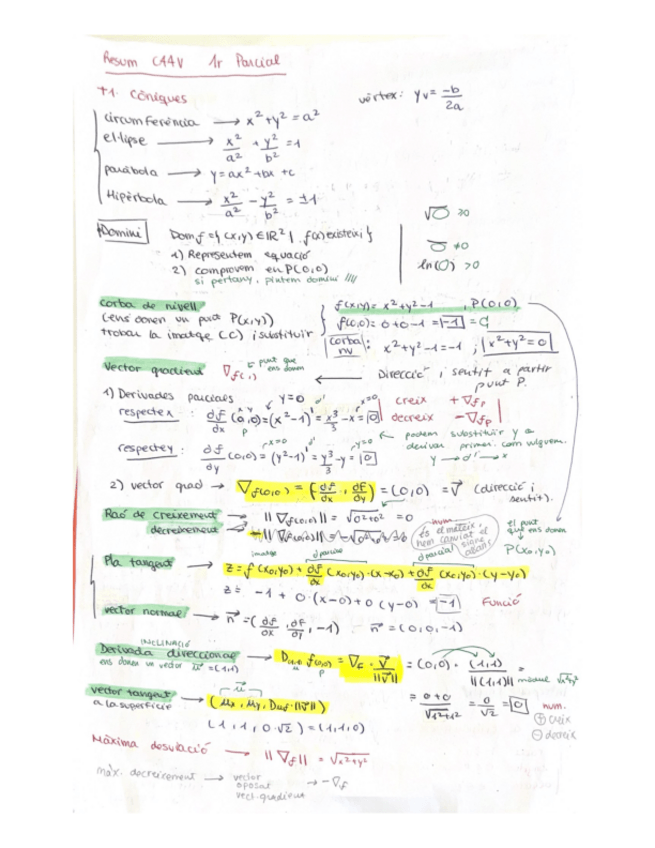 Resum CAAV 1r Parcial
T1. Còniques
vèrtex: yv = -b/2a
circumferència → x² + y² = a²
el·lipse → x²/a² + y²/b² = 1
paràbola → y = ax² + bx + c
Hipèrbola → x²/a² - y²/b² = ±1
Domini Dom f = { (x,y) ∈ ℝ² | f(x) existeixi }
1) Representem equació
2) comprovem en P(0,0)
si pertany, pintem domini ////
√O ≥0
O ≠0
ln(O) >0
corba de nivell
(ens donen un punt P(x,y))
trobau la imatge (C) i substituir
f(x,y) = x² + y² - 1 , P(0,0)
f(0,0) = 0 + 0 - 1 = -1 = C
Corba niv : x² + y² - 1 = -1 ; x² + y² = 0
vector gradient ∇f(,) punt que ens donen
← Direcció i sentit a partir punt P.
1) Derivades parcials
respecte x : df/dx (0,0) = (x² - 1)' = x³/3 - x = 0
y=0 d' x=0
creix + ∇fp
decreix - ∇fp
respecte y : df/dy (0,0) = (y² - 1)' = y³/3 - y = 0
x=0 d' y=0
podem substituïr y a
derivar primer. com vulguem.
y → d' → x
2) vector grad → ∇f(0,0) = (df/dx , df/dy) = (0,0) = v⃗ (direcció i sentit).
Raó de creixement → || ∇f(0,0) || = √0²+0² = 0
decreixement → - || ∇f(0,0) || = -√0²+0²
num.
és el mateix
hem canviat el
signe
abans
el punt
que ens donen
P(x₀,y₀)
imatge d parcial d parcial
Pla tangent → z = f(x₀,y₀) + df/dx (x₀,y₀)·(x-x₀) + df/dx (x₀,y₀)·(y-y₀)
z = -1 + 0·(x-0) + 0 (y-0) = -1 Funció
vector normal → n⃗ = (df/dx , df/dy , -1) n⃗ = (0,0,-1)
INCLINACIÓ
Derivada direccional
ens donen un vector u⃗ = (1,1)
→ D(1,1) f(0,0) = ∇f · v⃗/||v⃗|| = (0,0) · (1,1)/||(1,1)|| =
u p
mòdul √x²+y²
= 0+0/√1²+1² = 0/√2 = 0 num.
⊕ creix
⊖ decreix
vector tangent
a la superfície
u⃗
→ (μx, μy, Duf · ||v⃗||)
(1, 1, 0·√2) = (1,1,0)
Màxima desviació → || ∇f || = √x²+y²
màx. decreixement → vector
oposat
vect. gradient
→ -∇f